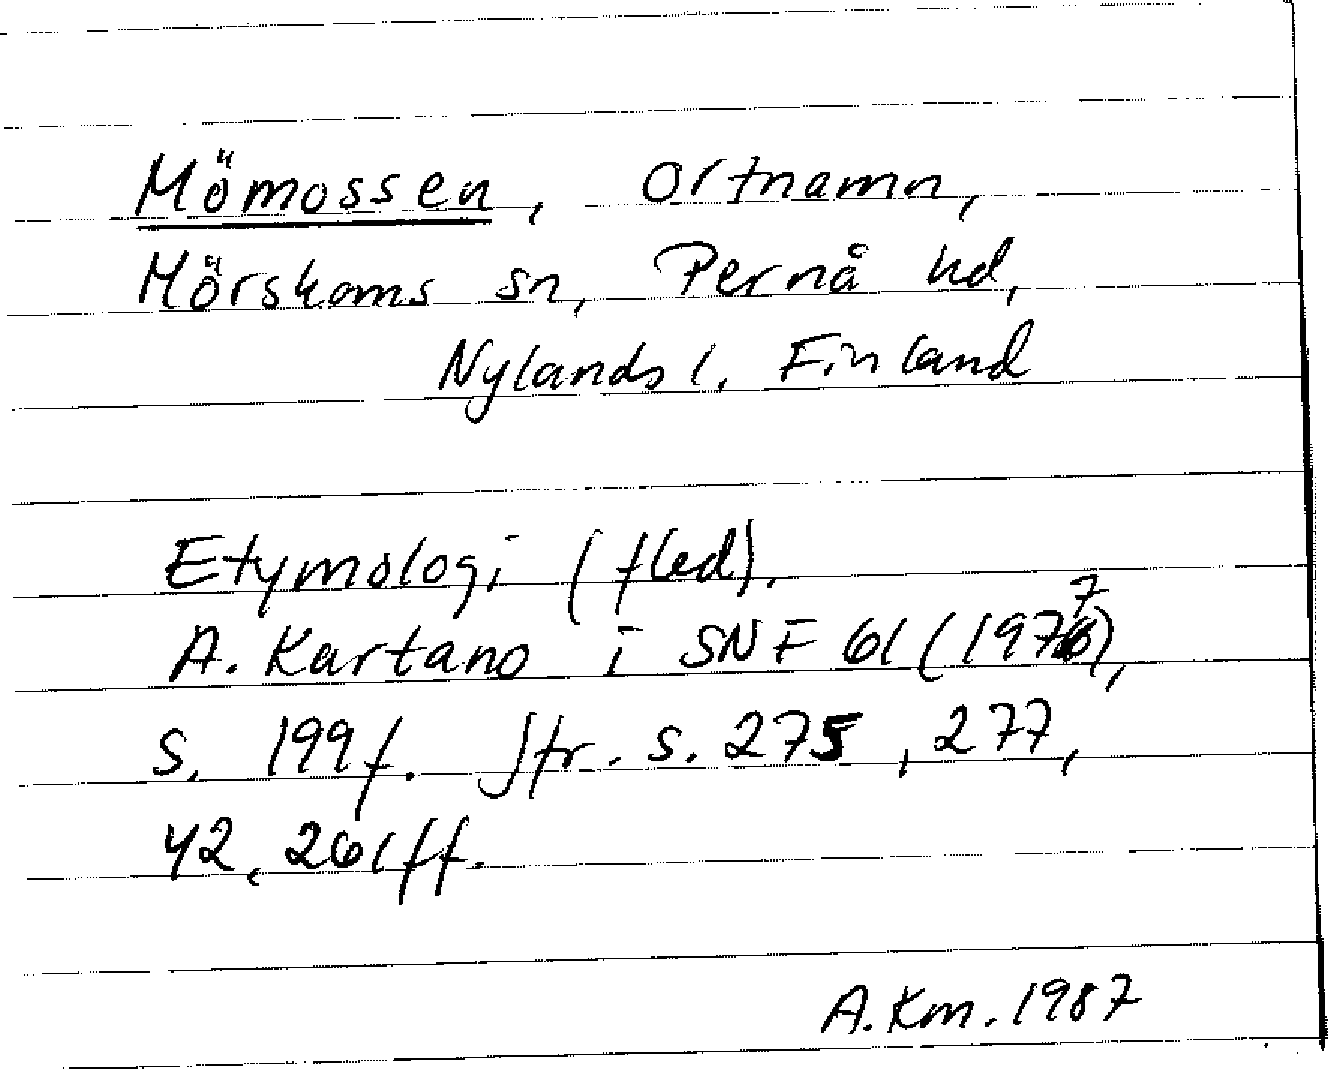 Mömossen, Ortnamn,
Mörskoms sn, Pernå hd,
Nylands l. Finland
Etymologi (fled).
A. Kartano i SNF 61 (1977),
s. 199 f. Jfr. s. 275, 277,
42, 261 ff.
A. Km. 1987